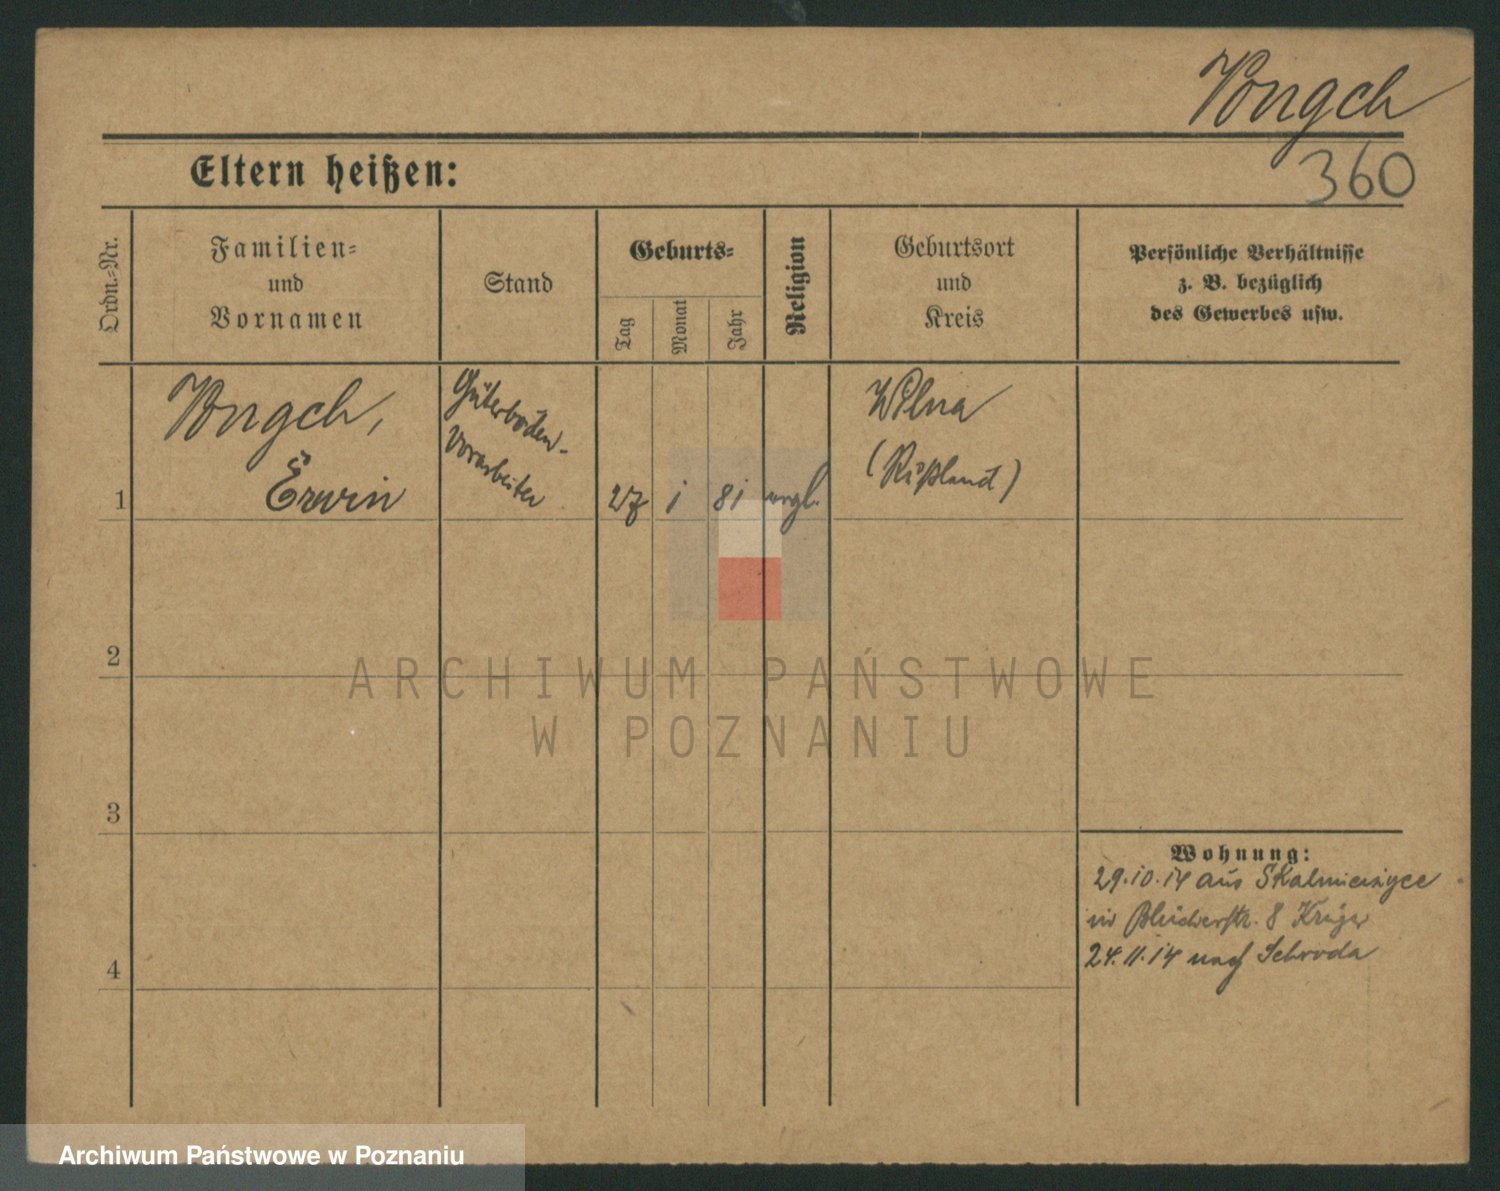 Vongch
360
Eltern heißen:
Ordn.-Nr.
Familien-
und
Vornamen
Stand
Geburts-
Tag
Monat
Jahr
Religion
Geburtsort
und
Kreis
Persönliche Verhältnisse
z. B. bezüglich
des Gewerbes usw.
Vongch,
Erwin
Güterboden-
Vorarbeiter
1
27
1
81
evgl.
Wilna
(Rußland)
2
3
4
Wohnung:
29.10.14 aus Skalmierzyce
in Blücherstr. 8 Krüger
24.11.14 nach Schroda
ARCHIWUM PAŃSTWOWE
W POZNANIU
Archiwum Państwowe w Poznaniu